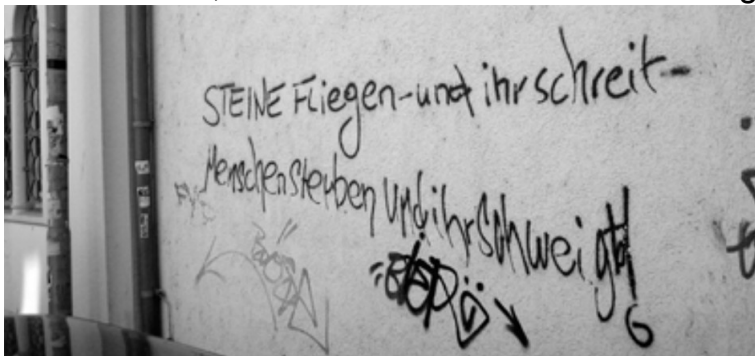 STEINE Fliegen-und ihr schreit-
Menschen sterben und ihr schweigt!